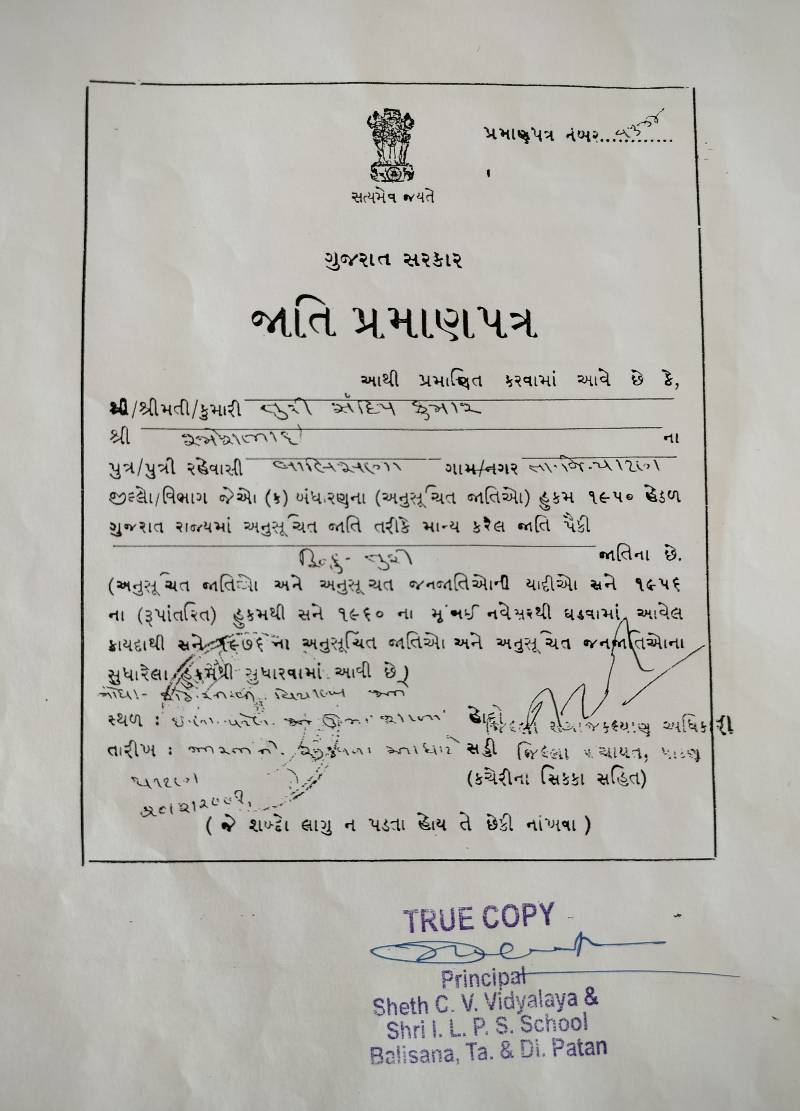 પ્રમાણપત્ર નંબર............
સત્યમેવ જયતે
ગુજરાત સરકાર
જાતિ પ્રમાણપત્ર
આથી પ્રમાણિત કરવામાં આવે છે કે,
શ્રી/શ્રીમતી/કુમારી તુરી સંદિપ કુમાર
શ્રી રમેશભાઈ ના
પુત્ર/પુત્રી રહેવાસી બાલિસણા ગામ/નગર તા.જિ.પાટણ
જીલ્લો/વિભાગ જેઓ (ક) બંધારણના (અનુસૂચિત જાતિઓ) હુકમ ૧૯૫૦ હેઠળ
ગુજરાત રાજ્યમાં અનુસૂચિત જાતિ તરીકે માન્ય કરેલ જાતિ પૈકી
હિન્દુ - તુરી જાતિના છે.
(અનુસૂચિત જાતિઓ અને અનુસૂચત જનજાતિઓની યાદીઓ સને ૧૯૫૬
ના (રૂપાંતરિત) હુકમથી સને ૧૯૬૦ ના મુંબઈ નવેસરથી ઘડવામાં આવેલ
કાયદાથી સને ૧૯૭૬ ના અનુસૂચિત જાતિઓ અને અનુસૂચિત જનજાતિઓના
સુધારેલા હુકમથી સુધારવામાં આવી છે)
સ્થળ : હોદ્દો જિલ્લા સમાજકલ્યાણ અધિકારી
તારીખ : સહી જિલ્લા પંચાયત, પાટણ
પાટણ (કચેરીના સિક્કા સહિત)
( જે શબ્દો લાગુ ન પડતા હોય તે છેકી નાંખવા )
TRUE COPY
Principal
Sheth C. V. Vidyalaya &
Shri I. L. P. S. School
Balisana, Ta. & Di. Patan